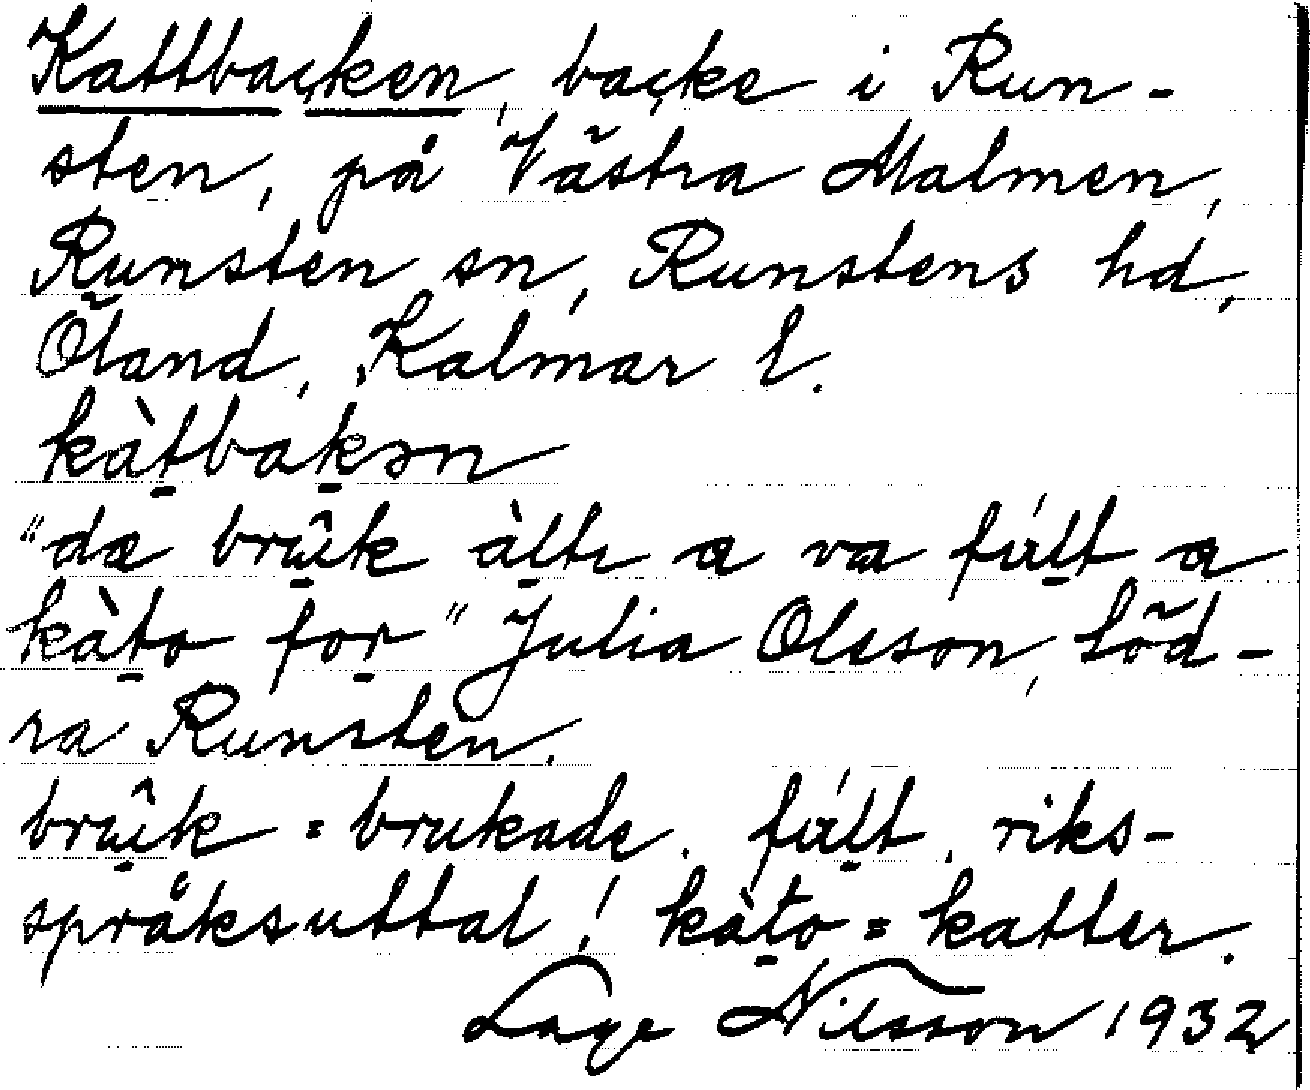 Kattbacken, backe i Run-
sten, på Västra Malmen,
Runsten sn, Runstens hd,
Öland, Kalmar l.
kàt̠bak̠ən
"dæ brûk a va a
kàt̠o for̠" Julia Olsson, Söd-
ra Runsten.
brûk = brukade. riks-
språksuttal! kàt̠o = katter.
Lage Nilsson 1932